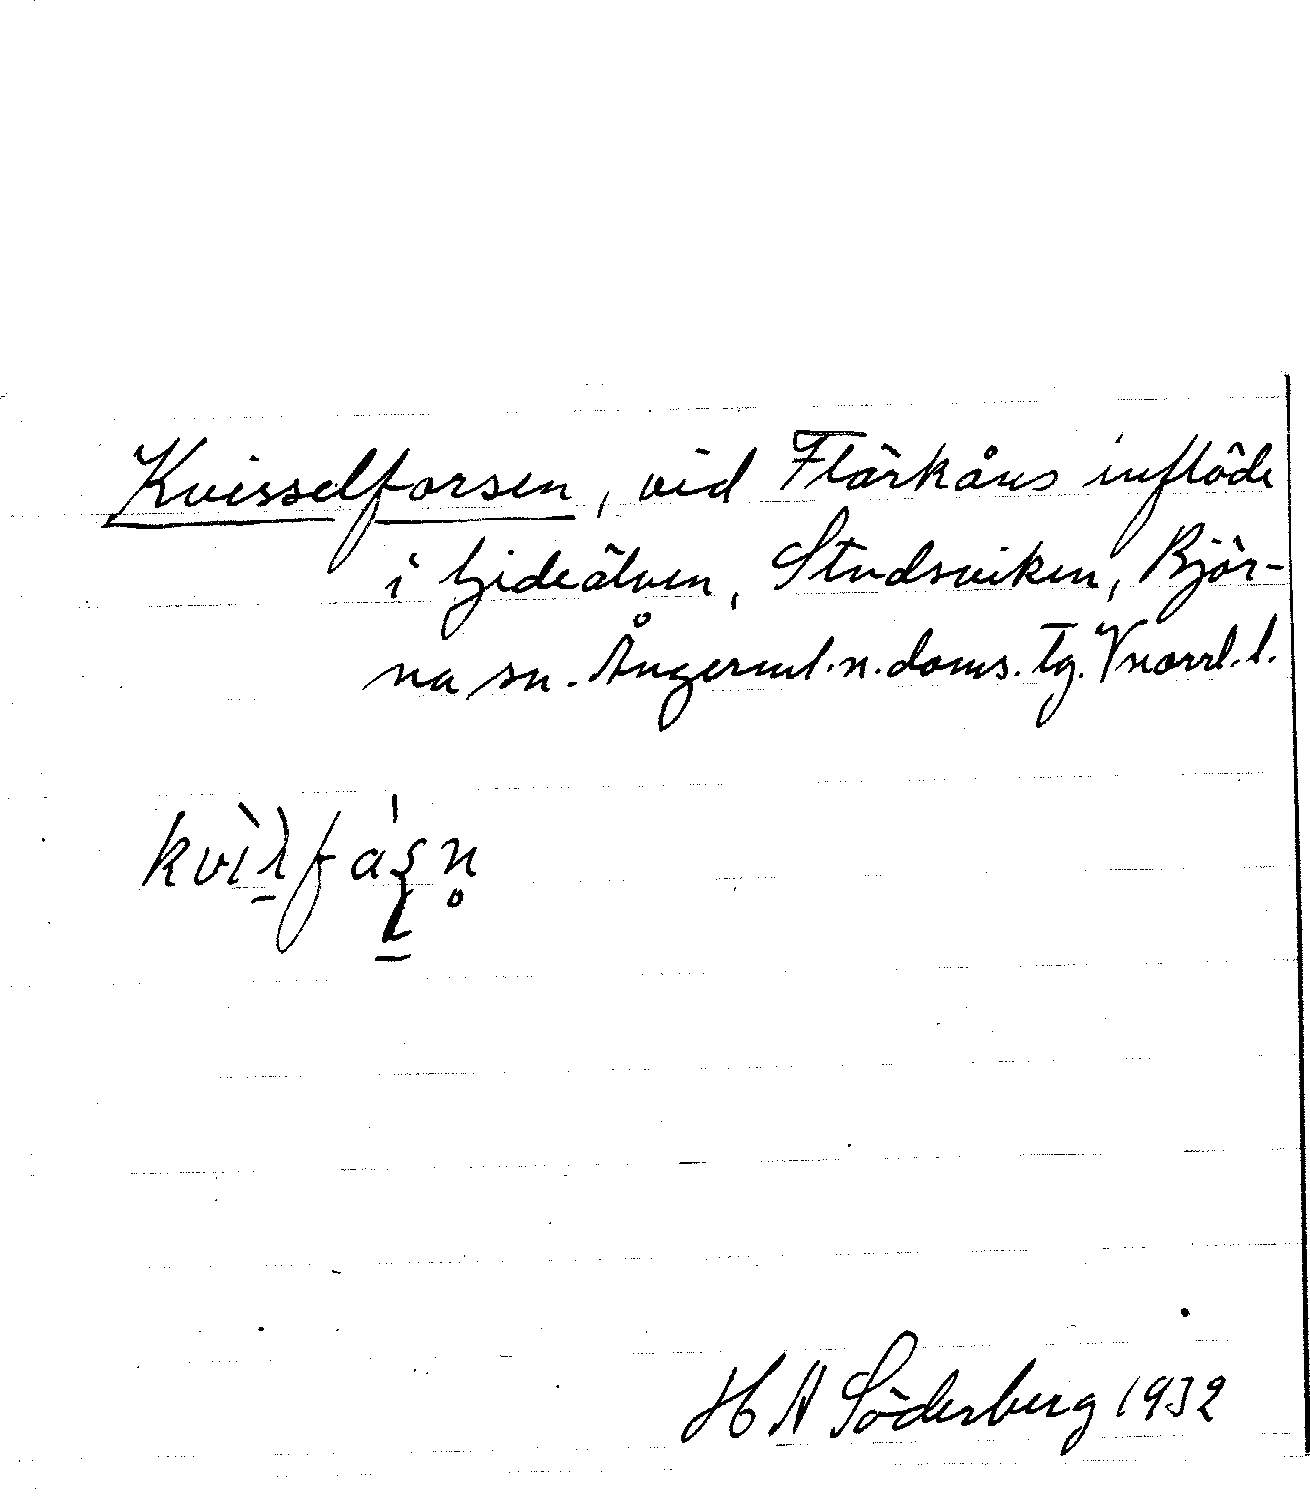 Kvisselforsen, vid Flärkåns inflöde
i Gideälven, Studsviken, Björ-
na sn. Ångerml. n. doms. tg. Vnorrl. l.
H A Söderberg 1932